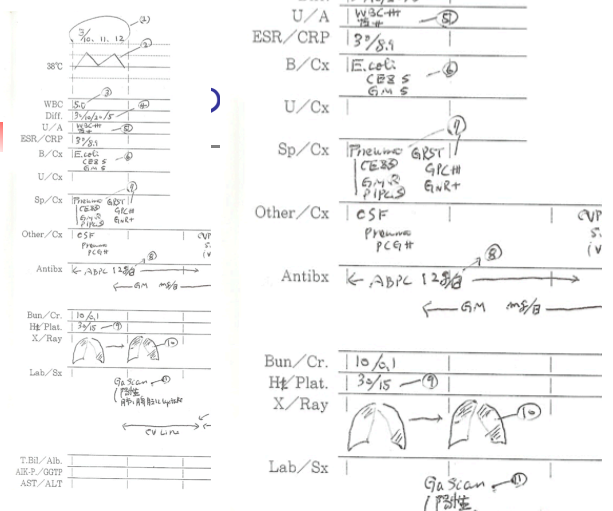 (2)
3/10. 11. 12
38℃
WBC 5.0 ③
Diff. 30/10/20/5 ④
U/A WBC卅 ⑤
ESR/CRP 30/8.9
B/Cx E.coli ⑥
CEZ S
GM S
U/Cx
⑦
Sp/Cx Pneumo GRST
GPC卅
GM
PIPC S GNR+
Other/Cx CSF CVP
Pneumo
⑧
Antibx ABPC 12g/日
GM mg/日
Bun/Cr. 10/0.1
Ht/Plat. 30/15 ⑨
X/Ray ⑩
Lab/Sx
Ga Scan ⑪
陰性
CV Line
T.Bil/Alb.
AlK-P/GGTP
AST/ALT
U/A WBC卅 ⑤
ESR/CRP 30/8.9
B/Cx E.coli ⑥
CEZ S
GM S
U/Cx
⑦
Sp/Cx Pneumo GRST
GPC卅
GM
PIPC S GNR+
Other/Cx CSF CVP
Pneumo
⑧
Antibx ABPC 12g/日
GM mg/日
Bun/Cr. 10/0.1
Ht/Plat. 30/15 ⑨
X/Ray ⑩
Lab/Sx
Ga Scan ⑪
陰性